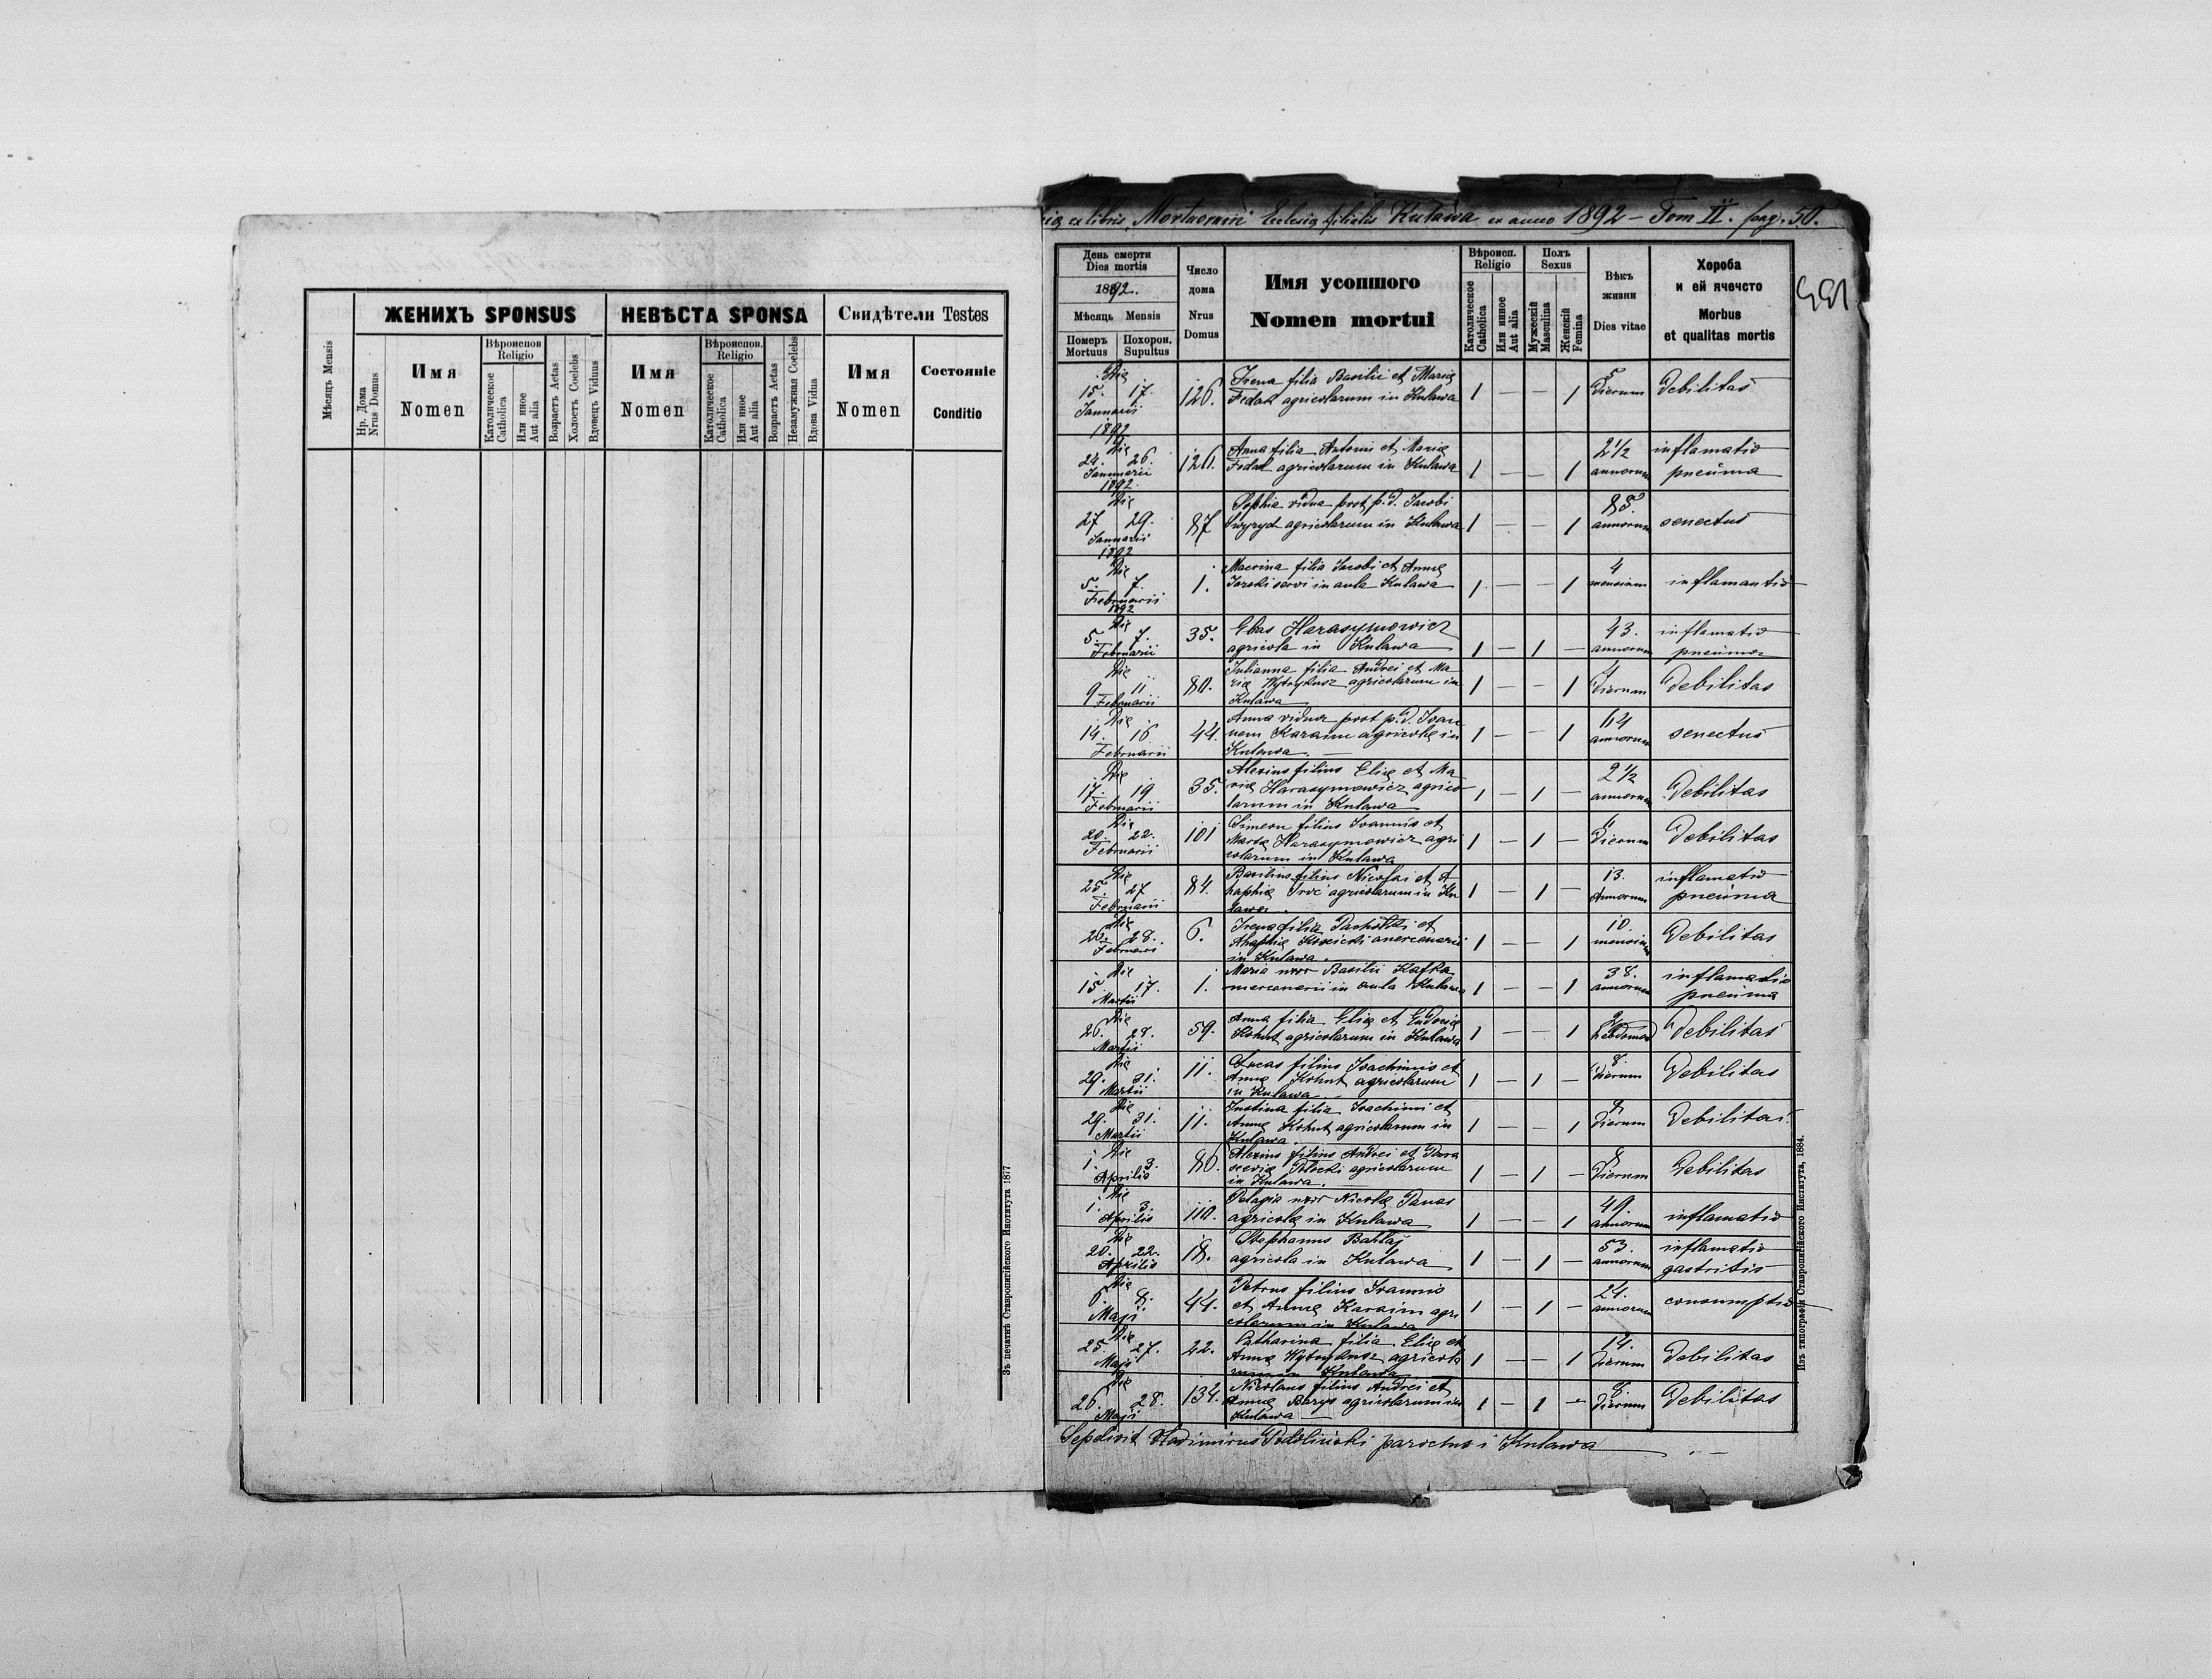 ЖЕНИХЪ SPONSUS
НЕВѢСТА SPONSA
Свидѣтели Testes
Мѣсяць Mensis
Нр. Дома
Nrus Domus
Имя
Nomen
Вѣроиспов
Religio
Католическое
Catholica
Или иное
Aut alia
Возрастъ Aetas
Холостъ Coelebs
Вдовецъ Viduus
Имя
Nomen
Вѣроиспов.
Religio
Католическое
Catholica
Или иное
Aut alia
Возрастъ Aetas
Незамужная Coelebs
Вдова Vidua
Имя
Nomen
Состояніе
Conditio
Зъ печатнѣ Ставропигійского Института 1877.
ex libris Mortuorum Ecclesię filialis Kulawa ex anno 1892 – Tom II. pag. 50.
День смерти
Dies mortis
1892.
Мѣсяць Mensis
Померъ
Mortuus
Похорон.
Supultus
Число
дома
Nrus
Domus
Имя усопшого
Nomen mortui
Вѣроисп.
Religio
Католическое
Catholica
Или инное
Aut alia
Полъ
Sexus
Мужескій
Masculina
Женскій
Femina
Вѣкъ
жизни
Dies vitae
Хороба
и ей ячечсто
Morbus
et qualitas mortis
Die
15. 17.
Januarii
1892
126.
Irena filia Basilii et Marię
Fedak agricolarum in Kulawa
1 — — 1
5
dierum
debilitas
Die
24. 26.
Januarii
1892.
126.
Anna filia Antonii et Marię
Fedak agricolarum in Kulawa
1 — — 1
2 1/2
annorum
inflamatio
pneuma
Die
27 29.
Januarii
1892
87
Sophia vidua post p.d. Jacobi
agricolarum in Kulawa
1 — — 1
88.
annorum
senectus
Die
5. 7.
Februarii
1892
1.
Macrina filia Jacobi et Annę
servi in aula Kulawa
1 — — 1
4
mensium
inflamantio
Die
5. 7.
Februarii
35.
Elias Harasymowicz
agricola in Kulawa
1 — 1 —
43.
annorum
inflamatio
pneuma
Die
9 11
Februarii
80.
Julianna filia Andrei et Ma
rię Wytrykusz agricolarum in
Kulawa
1 — — 1
dierum
debilitas
Die
14. 16
Februarii
44.
Anna vidua post p.d. Joan
nem Karaim agricolę in
Kulawa.
1 — — 1
64
annorum
senectus
Die
17. 19
Februarii
35.
Alexius filius Elię et Ma
rię Harasymowicz agrico
larum in Kulawa
1 — 1 —
2 1/2
annorum
debilitas
Die
20. 22.
Februarii
101
Simeon filius Joannis et
Marię Harasymowicz agri
colarum in Kulawa
1 — 1 —
dierum
debilitas
Die
25. 27
Februarii
84.
Basilius filius Nicolai et A
haphię agricolarum in Ku
lawa.
1 — 1 —
13.
annorum
inflamatio
pneuma
Die
26. 28.
Februarii
6.
Irena filia et
Ahaphię mercenarii
in Kulawa.
1 — — 1
10.
mensium
debilitas
Die
15. 17.
Martii
1.
Maria uxor Basilii Kafka
mercenarii in aula Kulawa
1 — — 1
38.
annorum
inflamatio
pneuma
Die
26. 28.
Martii
59.
Anna filia Elię et Eudocię
Kohut agricolarum in Kulawa
1 — — 1
hebdomad
debilitas
Die
29. 31.
Martii
11.
Lucas filius Joachimis et
Annę Kohut agricolarum
in Kulawa.
1 — 1 —
8.
dierum
debilitas
Die
29. 31.
Martii
11.
Justina filia Joachimi et
Annę Kohut agricolarum in
Kulawa.
1 — — 1
dierum
debilitas.
Die
1. 3.
Aprilis
86.
Alexius filius Andrei et Para
scevię agricolarum
in Kulawa.
1 — 1 —
8
dierum
debilitas
Die
1. 3.
Aprilis
110.
Pelagia uxor Nicolę Panas
agricolę in Kulawa
1 — — 1
49.
annorum
inflamatio
Die
20. 22.
Aprilis
18.
Stephanus Bahlaj
agricola in Kulawa
1 — 1 —
53.
annorum
inflamatio
gastritis
Die
6. 8.
Maji
44.
Petrus filius Joannis
et Annę Karaim agri
colarum in Kulawa
1 — 1 —
24.
annorum
consumptio
Die
25. 27.
Maji
22.
Catharina filia Elię et
Annę Wytrykusz agricola
rum in Kulawa
1 — — 1
14.
dierum
debilitas
Die
26. 28.
Maji
134.
Nicolaus filius Andrei et
Annę Barys agricolarum in
Kulawa
1 — 1 —
8.
dierum
debilitas
Sepelivit Vladimirus Podoliński parochus i Kulawa
Изъ типографіи Ставропигійского Института, 1884.